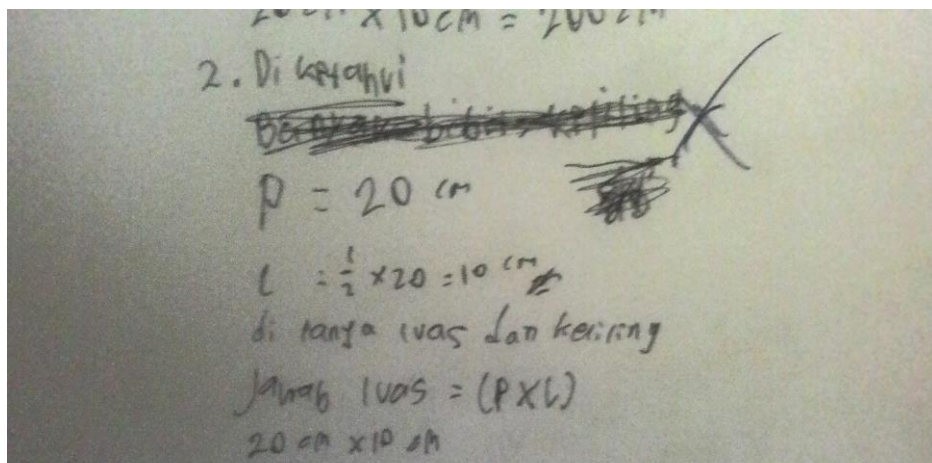 20 cm x 10 cm = 200 cm
2. Diketahui
P = 20 cm
l = 1/2 x 20 = 10 cm
di tanya luas dan keliling
Jawab luas = (P x l)
20 cm x 10 cm